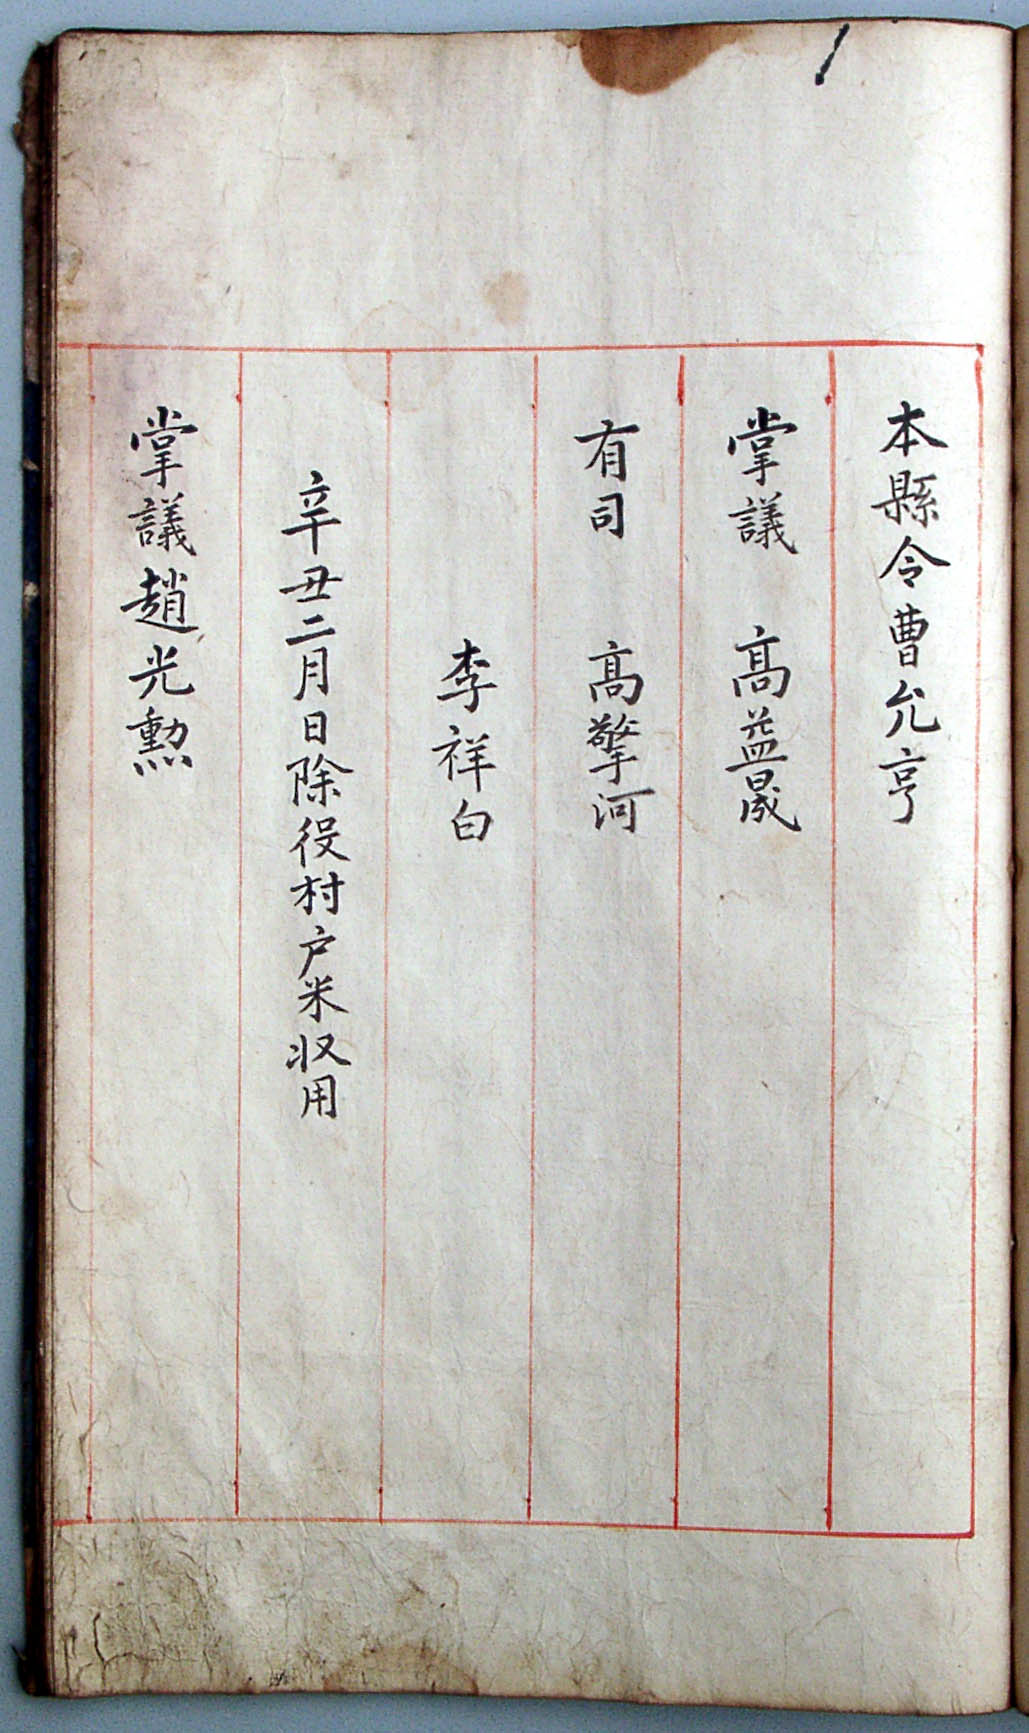 本縣令曹允亨
掌議 高益晟
有司 高擎河
李祥白
辛丑二月日除役村户米収用
掌議趙光勲